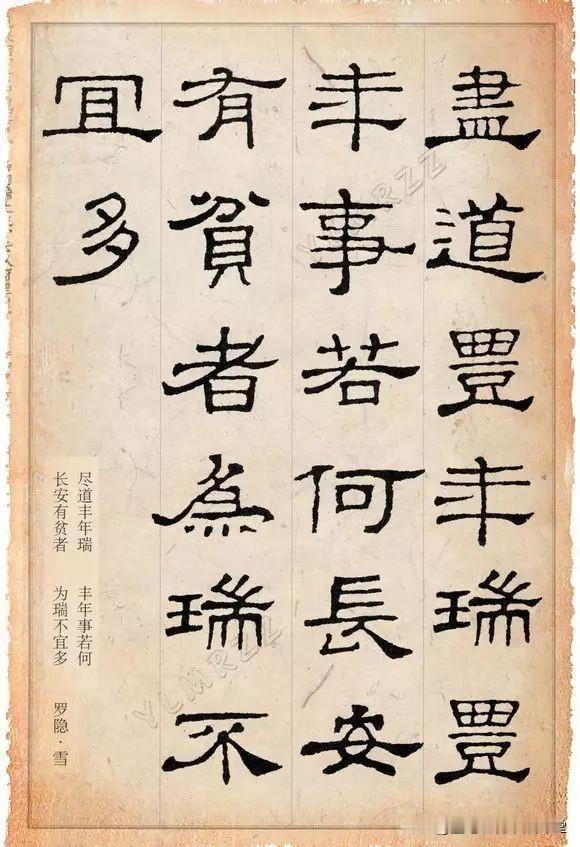 盡道豊年瑞豊
年事若何長安
有貧者為瑞不
宜多
尽道丰年瑞 丰年事若何
长安有贫者 为瑞不宜多 罗隐·雪
YLMRZZ
YLMRZZ